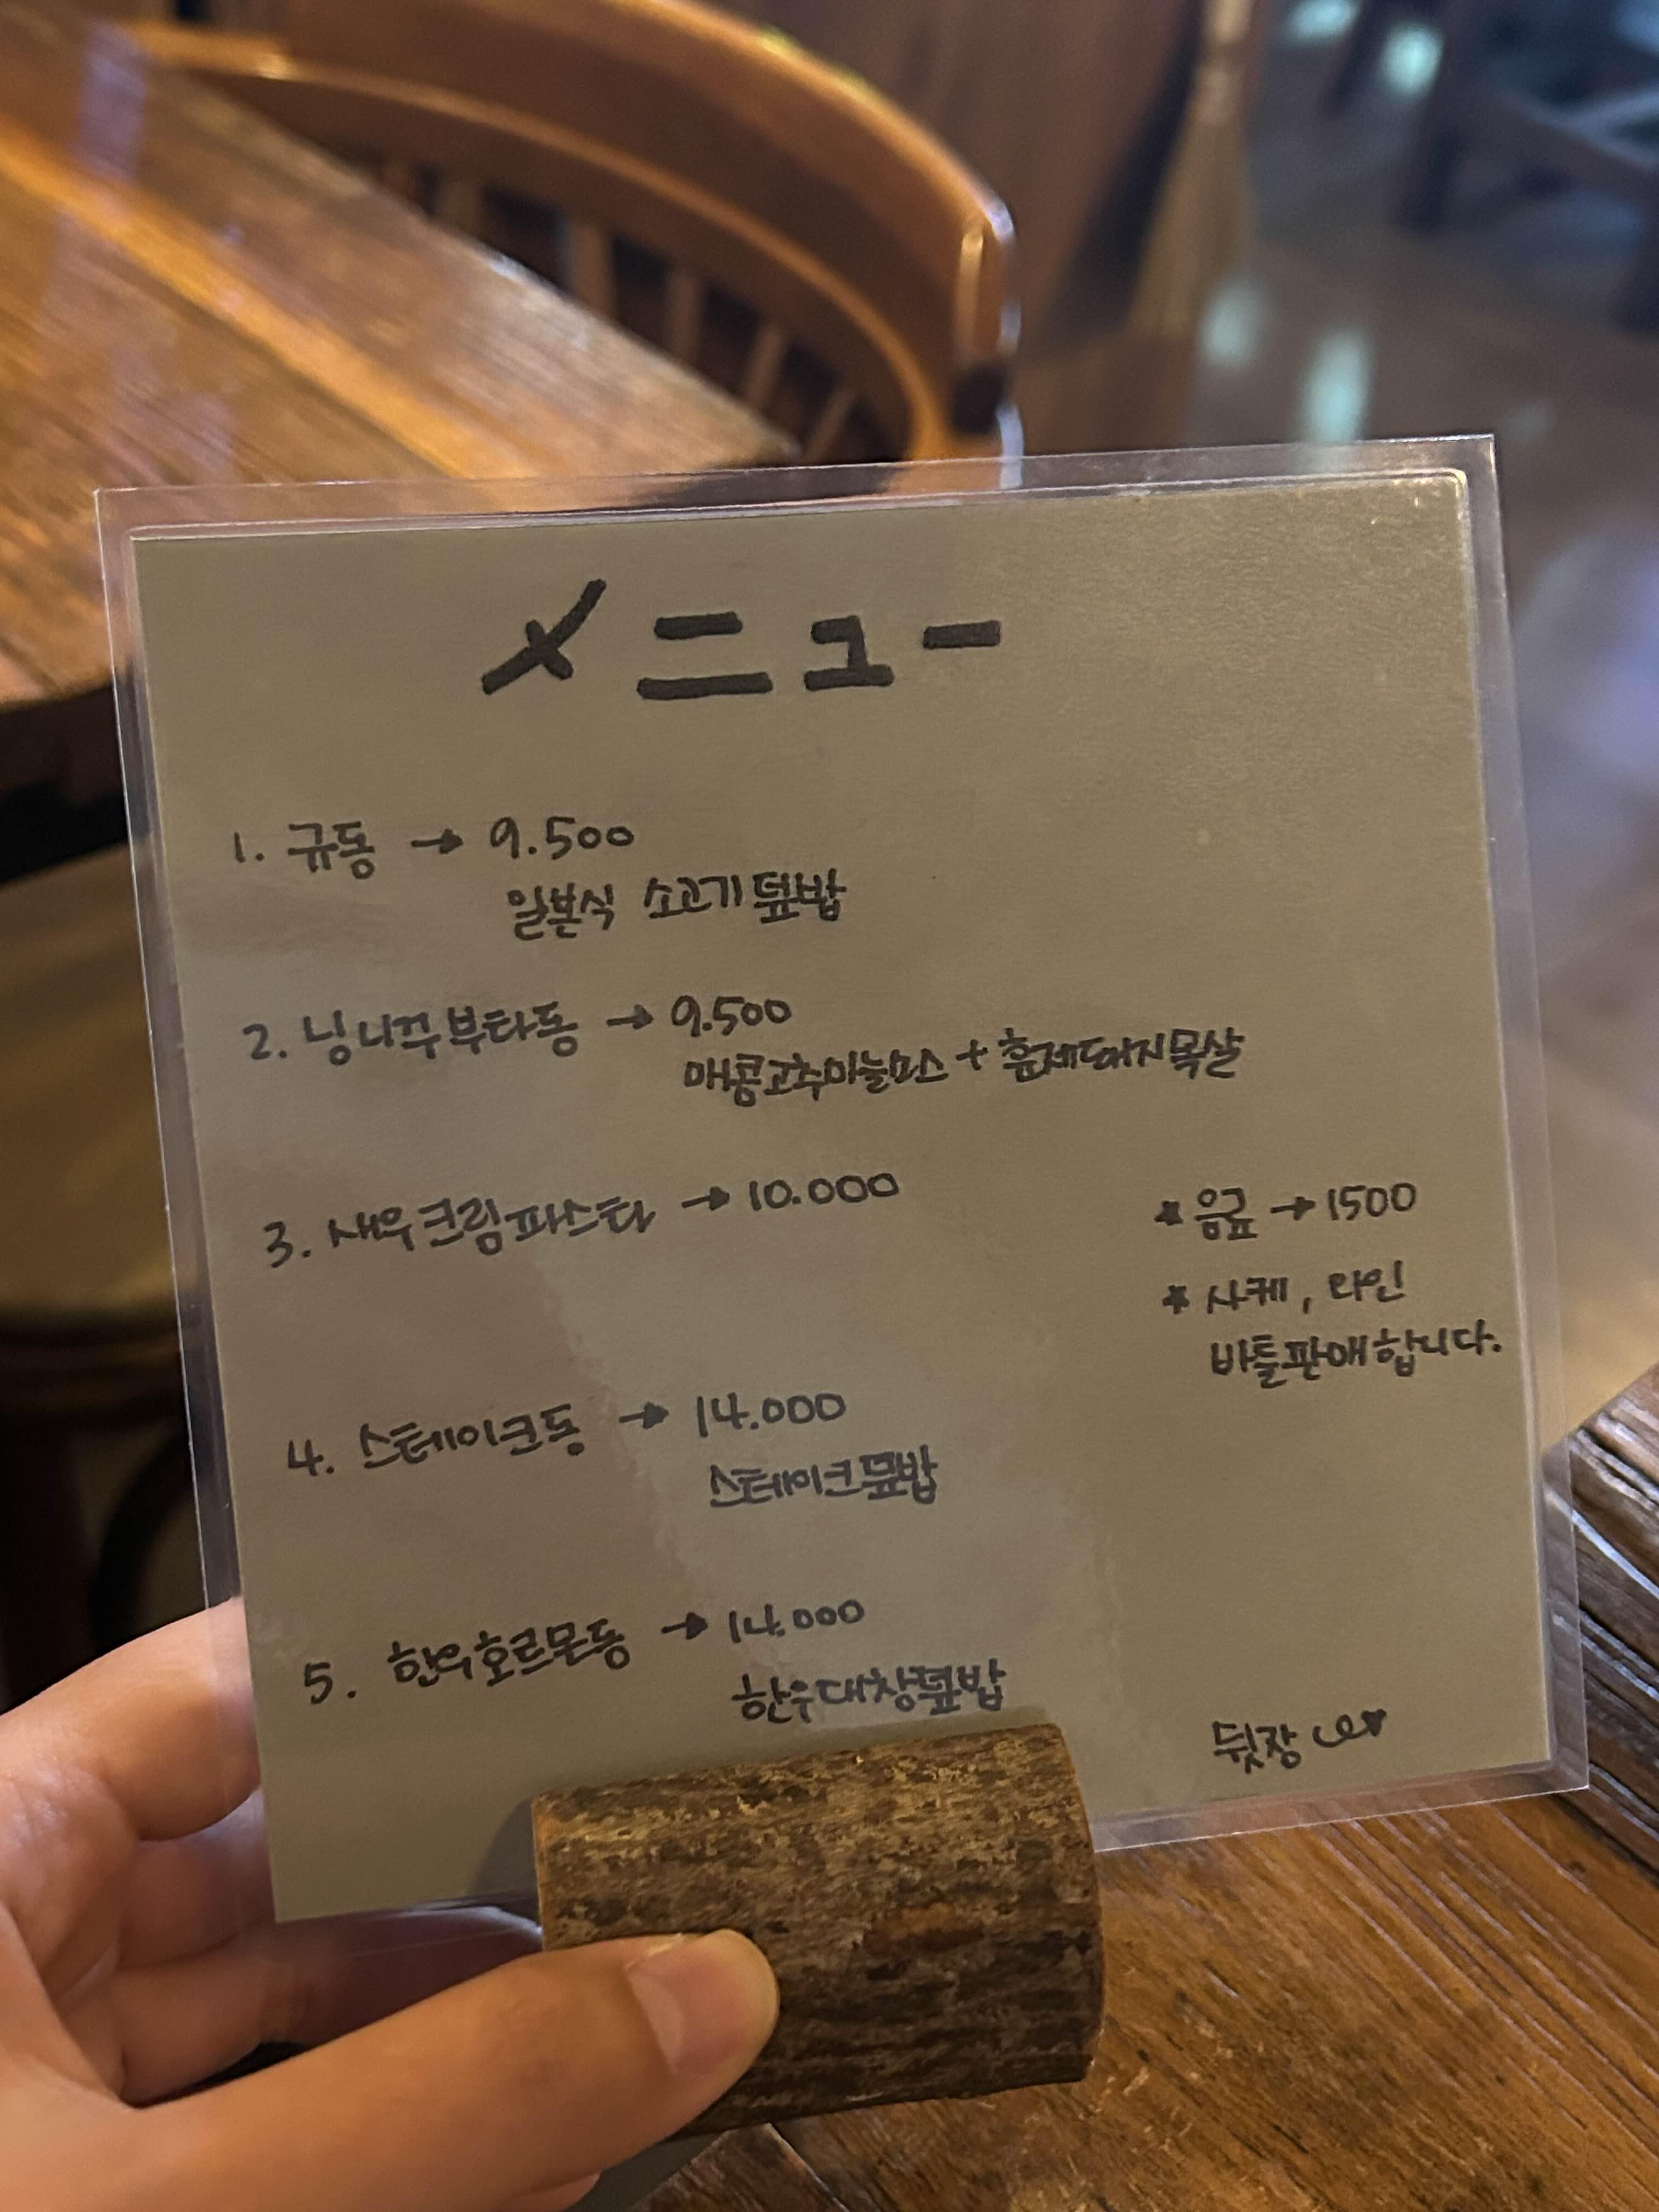 メニュー
1. 규동 → 9.500
일본식 소고기덮밥
2. 닝니꾸부타동 → 9.500
매콤고추마늘소스 + 훈제돼지목살
3. 새우크림파스타 → 10.000
4. 스테이크동 → 14.000
스테이크덮밥
5. 한우호르몬동 → 14.000
한우대창덮밥
* 음료 → 1500
* 사케, 와인
바틀판매합니다.
뒷장